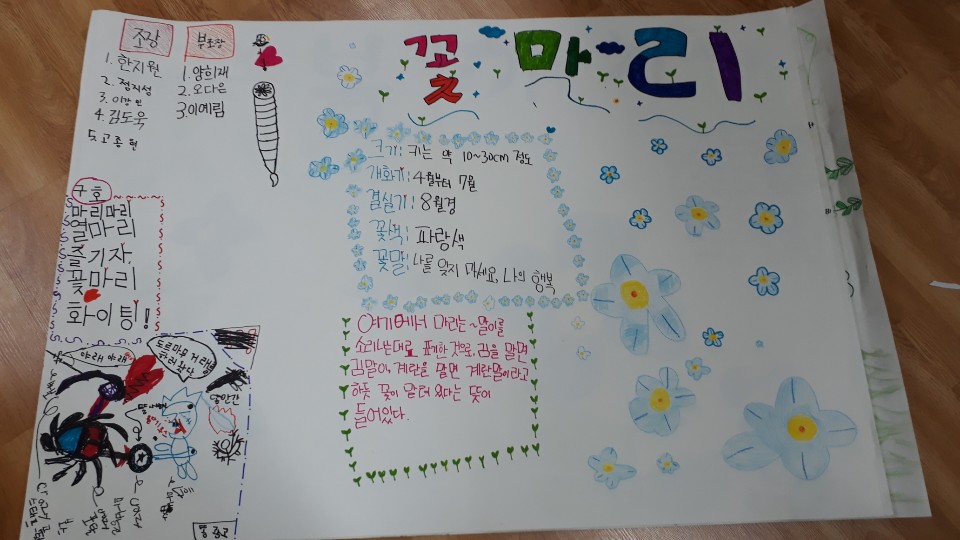 꽃마리
조장
1. 한지원
2. 정지성
3. 이강민
4. 김도욱
5. 고종현
부조장
1. 양희재
2. 오다은
3. 이예림
구호
마리마리
얼마리
즐기자
꽃마리
화이팅!
크기: 키는 약 10~30cm 정도
개화기: 4월부터 7월
결실기: 8월경
꽃색: 파랑색
꽃말: 나를 잊지 마세요, 나의 행복
여기에서 마리는 ~말이를
소리나는대로 표현한 것으로, 김을 말면
김말이, 계란을 말면 계란말이라고
하듯 꽃이 말려 있다는 뜻이
들어있다.